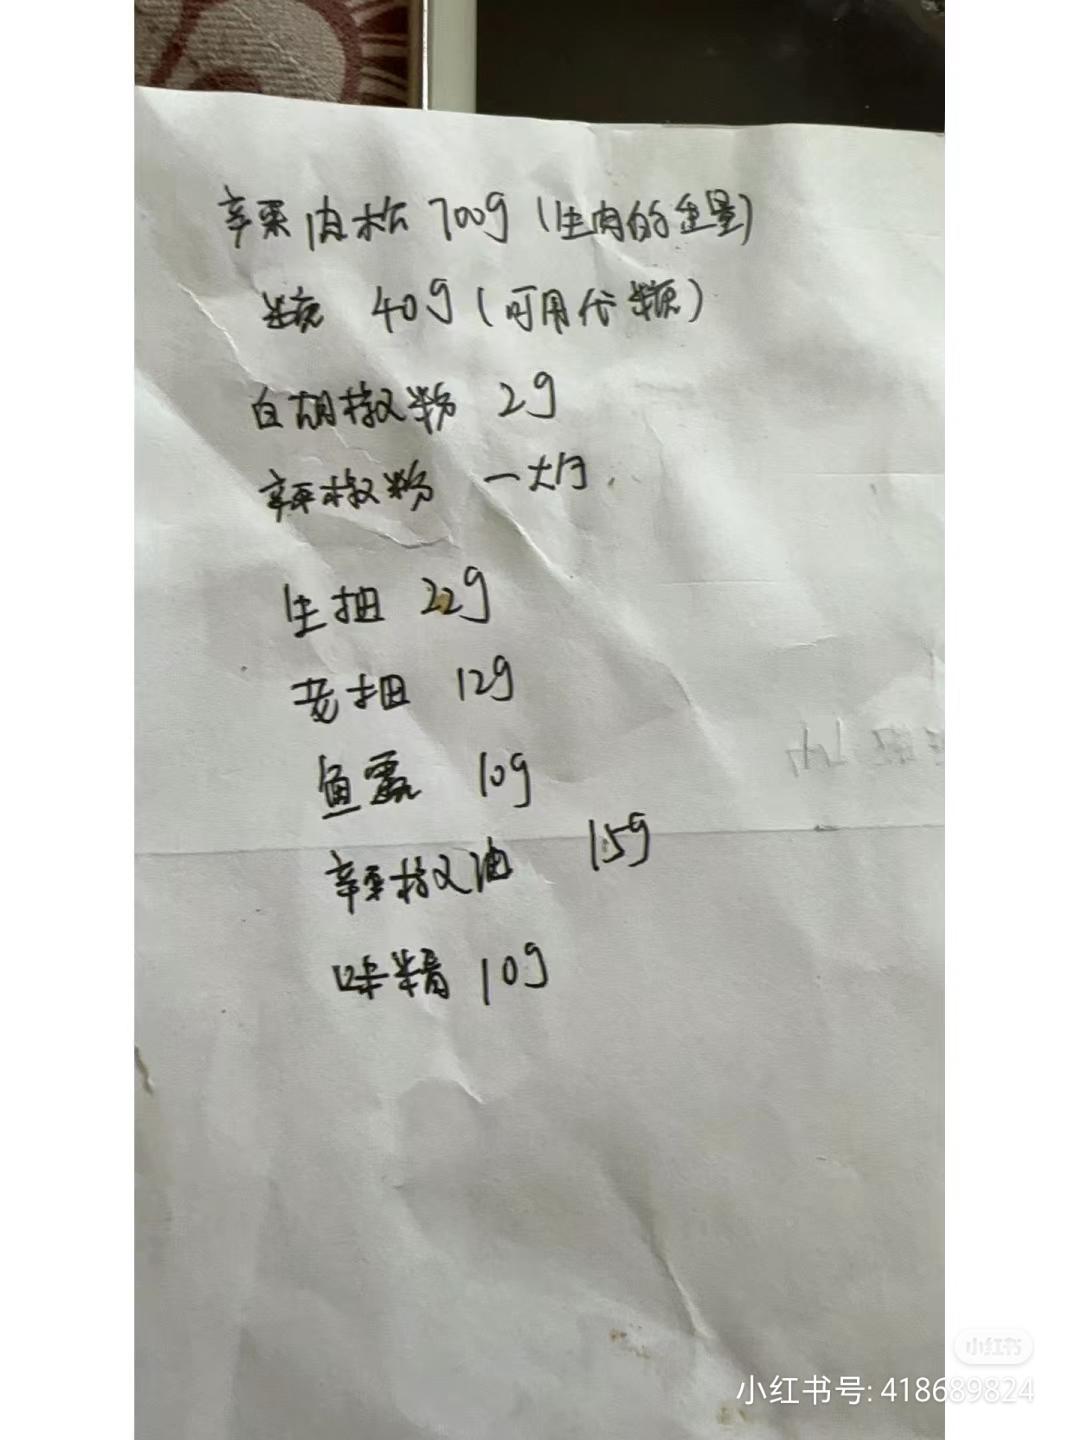 辣肉松 700g (生肉的重量)
糖 40g (可用代糖)
白胡椒粉 2g
辣椒粉 一大勺.
生抽 22g
老抽 12g
鱼露 10g
辣椒油 15g
味精 10g
小红书
小红书号: 418689824